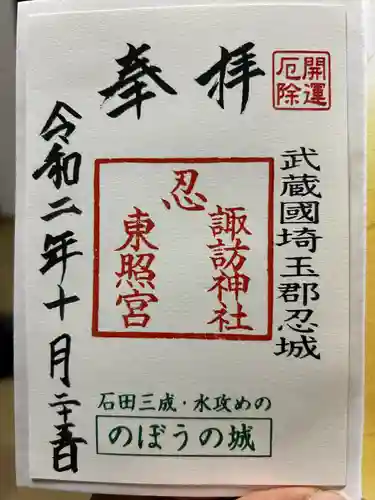 開運
厄除
奉拝
武蔵國埼玉郡忍城
忍
諏訪神社
東照宮
令和二年十月二十五日
石田三成・水攻めの
のぼうの城